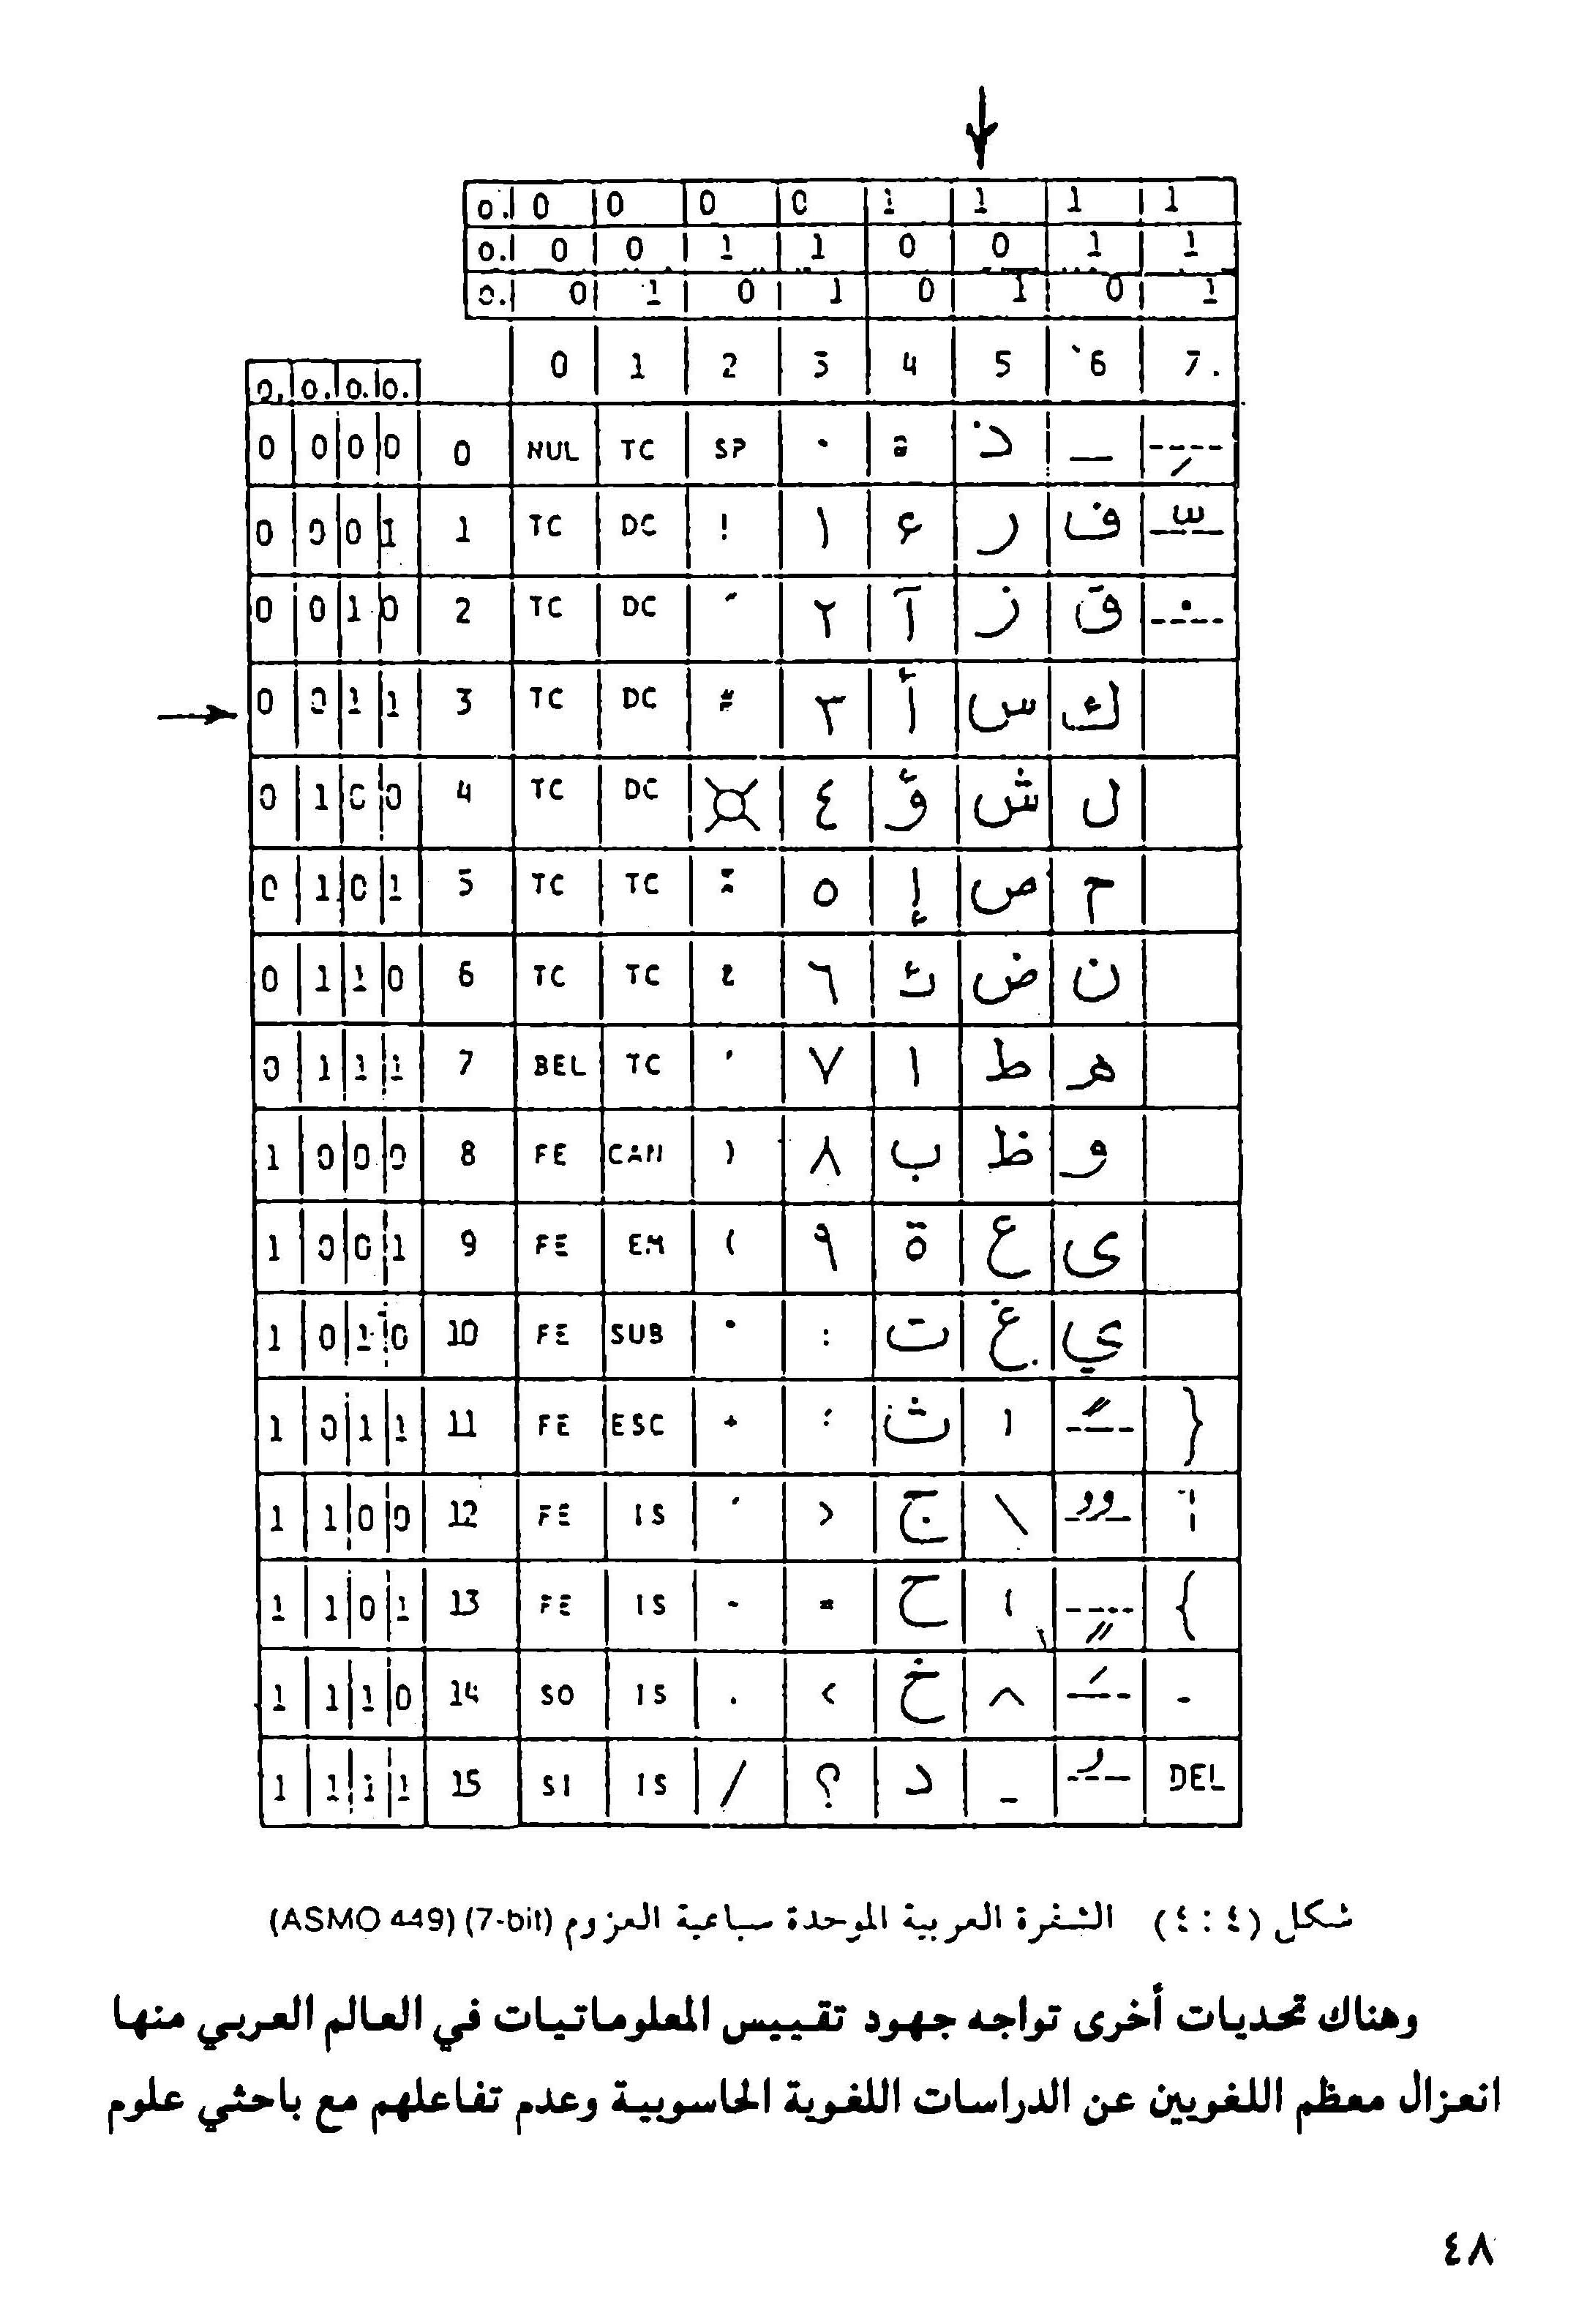 0. 0 0 0 0 1 1 1 1
0. 0 0 1 1 0 0 1 1
0. 0 1 0 1 0 1 0 1
0 1 2 3 4 5 6 7
0. 0. 0. 0.
0 0 0 0 0 NUL TC SP ٠ ذ ـ ـٍ
0 0 0 1 1 TC DC ! ١ ء ر ف ـّ
0 0 1 0 2 TC DC ٢ آ ز ق ـْ
0 0 1 1 3 TC DC # ٣ أ س ك
0 1 0 0 4 TC DC ¤ ٤ ؤ ش ل
0 1 0 1 5 TC TC ٥ إ ص م
0 1 1 0 6 TC TC ٦ ئ ض ن
0 1 1 1 7 BEL TC ' ٧ ا ط ه
1 0 0 0 8 FE CAN ) ٨ ب ظ و
1 0 0 1 9 FE EM ( ٩ ة ع ى
1 0 1 0 10 FE SUB : ت غ ي
1 0 1 1 11 FE ESC + ؛ ث ـً }
1 1 0 0 12 FE IS ، > ج \ ـٌ
1 1 0 1 13 FE IS - = ح ـٍ {
1 1 1 0 14 SO IS . < خ ^ ـَ
1 1 1 1 15 SI IS / ؟ د _ ـُ DEL
شكل (٤ : ٤) الشفرة العربية الموحدة سباعية العزوم (7-bit) (ASMO 449)
وهناك تحديات أخرى تواجه جهود تقييس المعلوماتيات في العالم العربي منها
انعزال معظم اللغويين عن الدراسات اللغوية الحاسوبية وعدم تفاعلهم مع باحثي علوم
٤٨